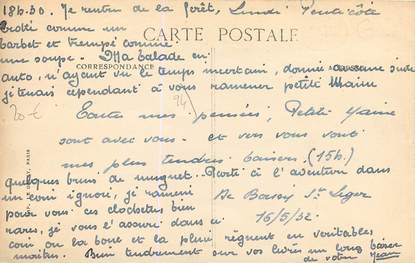 18h.30. Je rentre de la forêt, Lundi Pentecôte
crotté comme un
barbet et trempé comme
une soupe. Ma balade en
CARTE POSTALE
CORRESPONDANCE
auto, n'ayant vu le temps incertain, donnée aucune suite
je tenais cependant à vous ramener petite Maine
20 €
Toutes mes pensées, Petite Maine
sont avec vous. et vers vous vont
mes plus tendres baisers (15h.)
Quelques brins de muguet. Parti à l'aventure dans
un coin ignoré, je ramène
pour vous. ces clochettes bien
rares, je vous l'assure dans ce
De Boissy St Leger
16/5/32
coin où la boue et la pluie règnent en véritables
maîtres. Bien tendrement sur vos lèvres un long baiser
de votre Jean